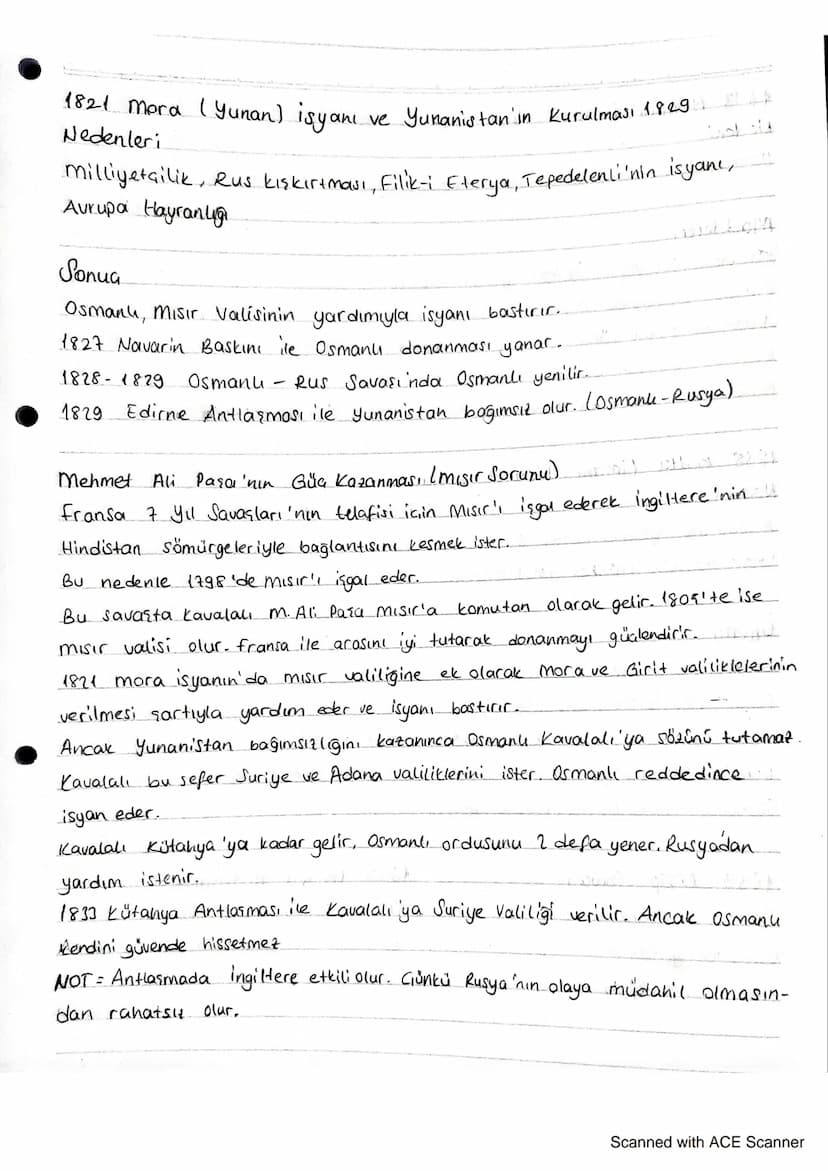 1821 Mora (Yunan) isyanı ve Yunanistan'ın Kurulması 1829
Nedenleri
Milliyetçilik, Rus kışkırtması, Filik-i Eterya, Tepedelenli'nin isyanı,
Avrupa Hayranlığı
Sonuç
Osmanlı, Mısır Valisinin yardımıyla isyanı bastırır.
1827 Navarin Baskını ile Osmanlı donanması yanar.
1828-1829 Osmanlı - Rus Savaşı'nda Osmanlı yenilir.
1829 Edirne Antlaşması ile Yunanistan bağımsız olur. (Osmanlı-Rusya)
Mehmet Ali Paşa'nın Güç Kazanması (Mısır Sorunu)
Fransa 7 Yıl Savaşları'nın telafisi için Mısır'ı işgal ederek İngiltere'nin
Hindistan sömürgeleriyle bağlantısını kesmek ister.
Bu nedenle 1798'de Mısır'ı işgal eder.
Bu savaşta Kavalalı M. Ali Paşa Mısır'a komutan olarak gelir. 1805'te ise
mısır valisi olur. Fransa ile arasını iyi tutarak donanmayı güçlendirir.
1821 mora isyanın'da mısır valiliğine ek olarak Mora ve Girit valiliklelerinin
verilmesi şartıyla yardım eder ve isyanı bastırır.
Ancak Yunanistan bağımsızlığını kazanınca Osmanlı Kavalalı'ya sözünü tutamaz.
Kavalalı bu sefer Suriye ve Adana valiliklerini ister. Osmanlı reddedince
isyan eder.
Kavalalı Kütahya'ya kadar gelir, Osmanlı ordusunu 2 defa yener. Rusya'dan
yardım istenir.
1833 Kütahya Antlaşması ile Kavalalı'ya Suriye Valiliği verilir. Ancak Osmanlı
kendini güvende hissetmez
NOT = Antlaşmada İngiltere etkili olur. Çünkü Rusya'nın olaya müdahil olmasın-
dan rahatsız olur.
Scanned with ACE Scanner